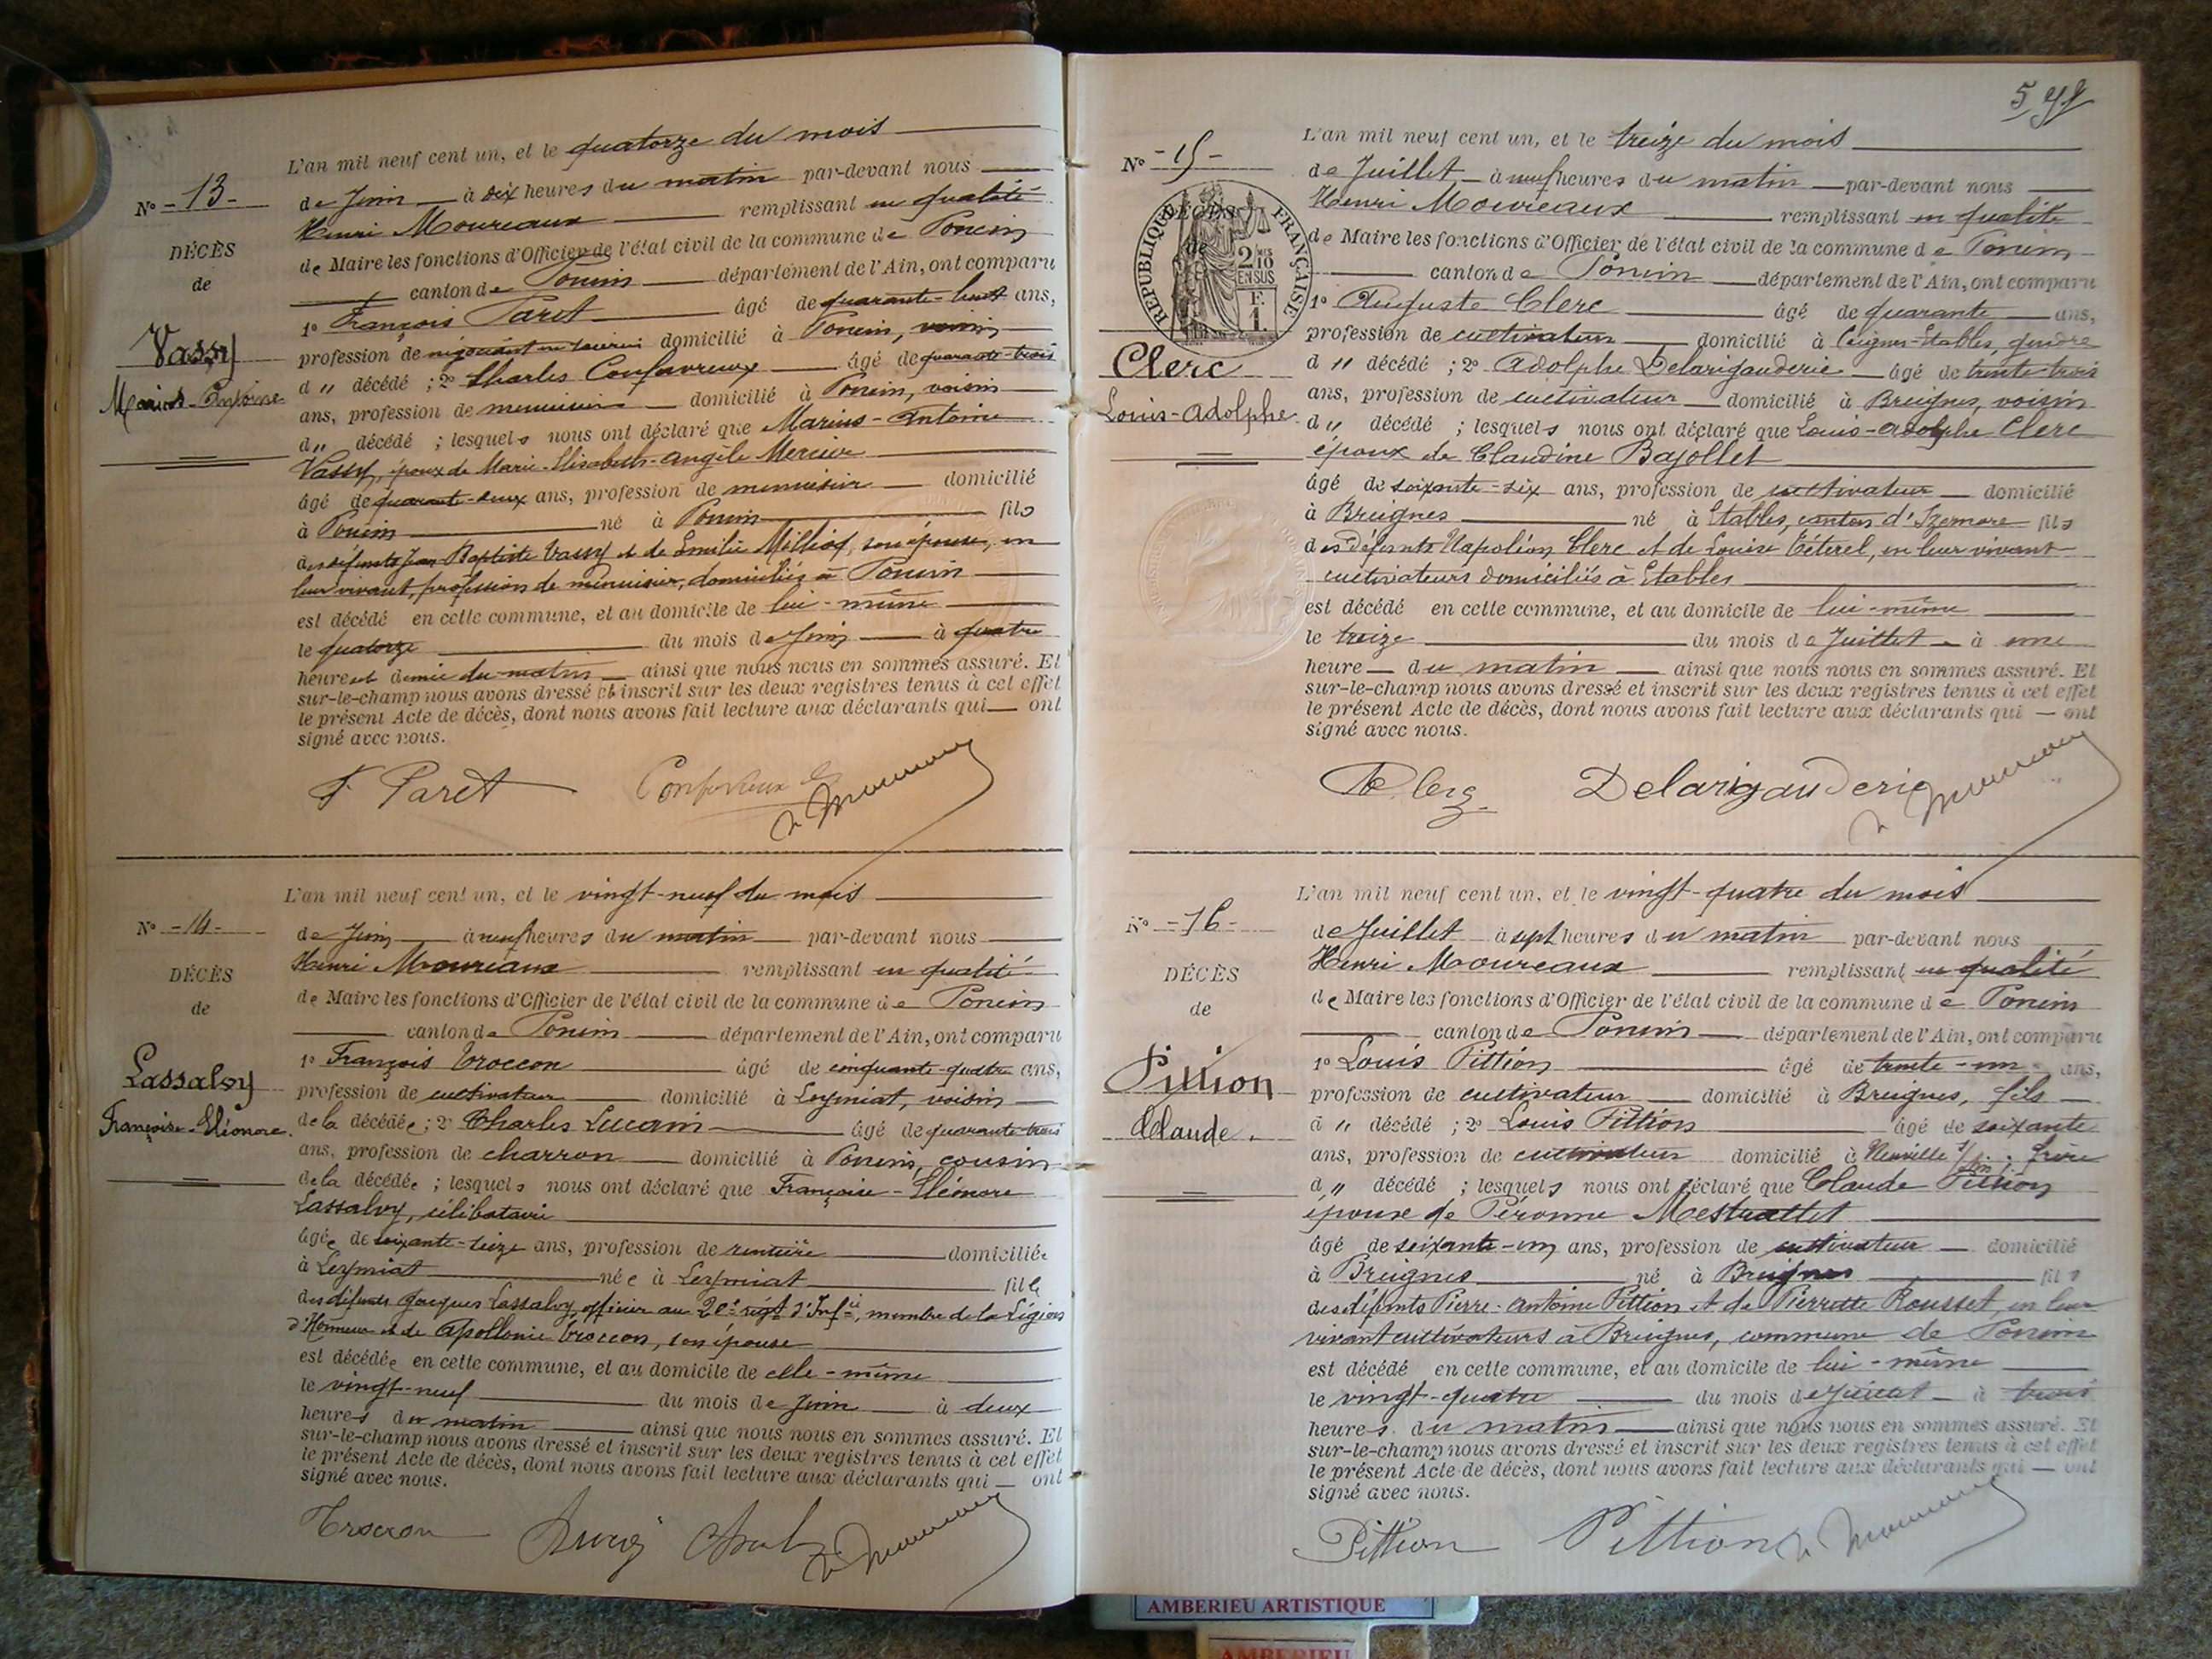 L'an mil neuf cent un, et le quatorze du mois
N° - 13 -
de Juin à dix heures du matin par-devant nous
Henri Moureaux remplissant en qualité
DÉCÈS
de Maire les fonctions d'Officier de l'état civil de la commune de Poncin
de
canton de Poncin département de l'Ain, ont comparu
1° François Paret âgé de quarante-huit ans,
Vassy
profession de négociant en domicilié à Poncin, voisin
Marius-Antoine
d " décédé ; 2° Charles Confavreux âgé de quarante-trois
ans, profession de menuisier domicilié à Poncin, voisin
d " décédé ; lesquels nous ont déclaré que Marius-Antoine
Vassy, époux de Marie-Elisabeth-Angèle Mercier
âgé de quarante-deux ans, profession de menuisier domicilié
à Poncin né à Poncin fils
des défunts Jean Baptiste Vassy et de Emilie Milliod, son épouse, en
leur vivant, profession de menuisier, domiciliés à Poncin
est décédé en cette commune, et au domicile de lui-même
le quatorze du mois de Juin à quatre
heures et demie du matin ainsi que nous nous en sommes assuré. Et
sur-le-champ nous avons dressé et inscrit sur les deux registres tenus à cet effet
le présent Acte de décès, dont nous avons fait lecture aux déclarants qui — ont
signé avec nous.
F Paret Confavreux
L'an mil neuf cent un, et le vingt-neuf du mois
N° - 14 -
de Juin à neuf heures du matin par-devant nous
Henri Moureaux remplissant en qualité
DÉCÈS
de Maire les fonctions d'Officier de l'état civil de la commune de Poncin
de
canton de Poncin département de l'Ain, ont comparu
1° François Troccon âgé de cinquante-quatre ans,
Lassalvy
profession de cultivateur domicilié à Leymiat, voisin
Françoise-Eléonore.
de la décédée ; 2° Charles Lucain âgé de quarante-trois
ans, profession de charron domicilié à Poncin, cousin
de la décédée ; lesquels nous ont déclaré que Françoise-Eléonore
Lassalvy, célibataire
âgée de soixante-seize ans, profession de rentière domiciliée
à Leymiat née à Leymiat fille
des défunts Jacques Lassalvy, officier au 20e régt d'Infie, membre de la Légion
d'Honneur et de Apollonie Troccon, son épouse
est décédée en cette commune, et au domicile de elle-même
le vingt-neuf du mois de Juin à deux
heures du matin ainsi que nous nous en sommes assuré. Et
sur-le-champ nous avons dressé et inscrit sur les deux registres tenus à cet effet
le présent Acte de décès, dont nous avons fait lecture aux déclarants qui — ont
signé avec nous.
Troccon
L'an mil neuf cent un, et le treize du mois
N° - 15 -
de Juillet à neuf heures du matin par-devant nous
Henri Moureaux remplissant en qualité
DÉCÈS
RÉPUBLIQUE FRANÇAISE
2/10 EN SUS
F. 1.
de Maire les fonctions d'Officier de l'état civil de la commune de Poncin
canton de Poncin département de l'Ain, ont comparu
1° Auguste Clerc âgé de quarante ans,
profession de cultivateur domicilié à Ceignes-Etables, gendre
Clerc
d " décédé ; 2° Adolphe Delarigauderie âgé de trente-trois
Louis-Adolphe
ans, profession de cultivateur domicilié à Breignes, voisin
d " décédé ; lesquels nous ont déclaré que Louis-Adolphe Clerc
époux de Claudine Bajollet
âgé de soixante-six ans, profession de cultivateur domicilié
à Breignes né à Etables, canton d'Izernore fils
des défunts Napoléon Clerc et de Louise Téterel, en leur vivant
cultivateurs domiciliés à Etables
est décédé en cette commune, et au domicile de lui-même
le treize du mois de Juillet à une
heure du matin ainsi que nous nous en sommes assuré. Et
sur-le-champ nous avons dressé et inscrit sur les deux registres tenus à cet effet
le présent Acte de décès, dont nous avons fait lecture aux déclarants qui — ont
signé avec nous.
Clerg Delarigauderie
L'an mil neuf cent un, et le vingt-quatre du mois
N° - 16 -
de Juillet à sept heures du matin par-devant nous
Henri Moureaux remplissant en qualité
DÉCÈS
de Maire les fonctions d'Officier de l'état civil de la commune de Poncin
de
canton de Poncin département de l'Ain, ont comparu
1° Louis Pittion âgé de trente-un ans,
Pittion
profession de cultivateur domicilié à Breignes, fils
Claude.
d " décédé ; 2° Louis Pittion âgé de soixante
ans, profession de cultivateur domicilié à Neuville s/ Ain, frère
d " décédé ; lesquels nous ont déclaré que Claude Pittion
époux de Péronne Mestrallet
âgé de soixante-un ans, profession de cultivateur domicilié
à Breignes né à Breignes fils
des défunts Pierre-Antoine Pittion et de Pierrette Rousset, en leur
vivant cultivateurs à Breignes, commune de Poncin
est décédé en cette commune, et au domicile de lui-même
le vingt-quatre du mois de Juillet à trois
heures du matin ainsi que nous nous en sommes assuré. Et
sur-le-champ nous avons dressé et inscrit sur les deux registres tenus à cet effet
le présent Acte de décès, dont nous avons fait lecture aux déclarants qui — ont
signé avec nous.
Pittion Pittion
AMBERIEU ARTISTIQUE
AMBERIEU